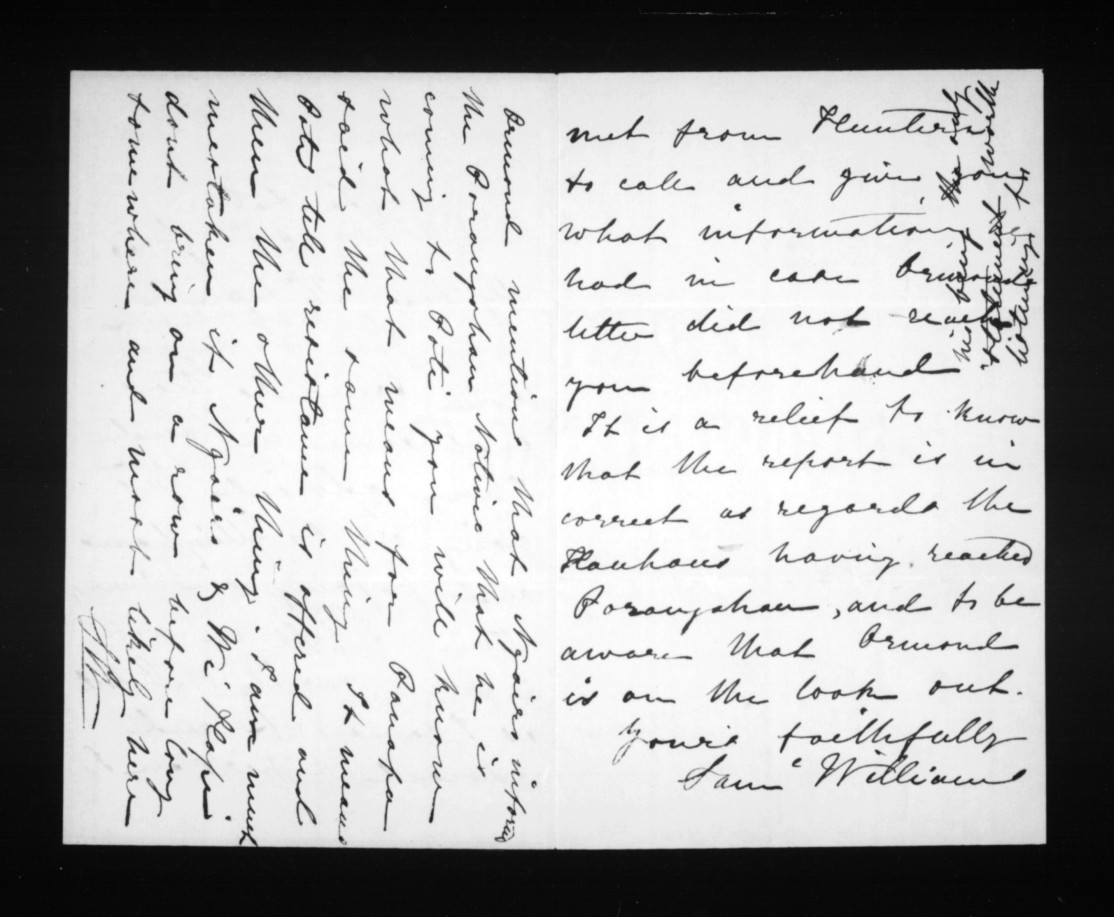 met from Hunters
to call and give you
what information he
had in case Ormonds
letter did not reach
you beforehand
It is a relief to know
that the report is in
correct as regards the
Hauhaus having reached
Porangahau, and to be
aware that Ormond
is on the look out.
Yours faithfully
Saml Williams
Ormond mentions that Ngairo informs
the Porangahau Natives that he is
coming to Poti you will know
what that means for Paupa
said the same thing. It means
Poti till resistance is offered and
then the other thing. I am much
mistaken if Ngairo & Wi Hapi
dont bring on a row before long
somewhere and most likely here
SW